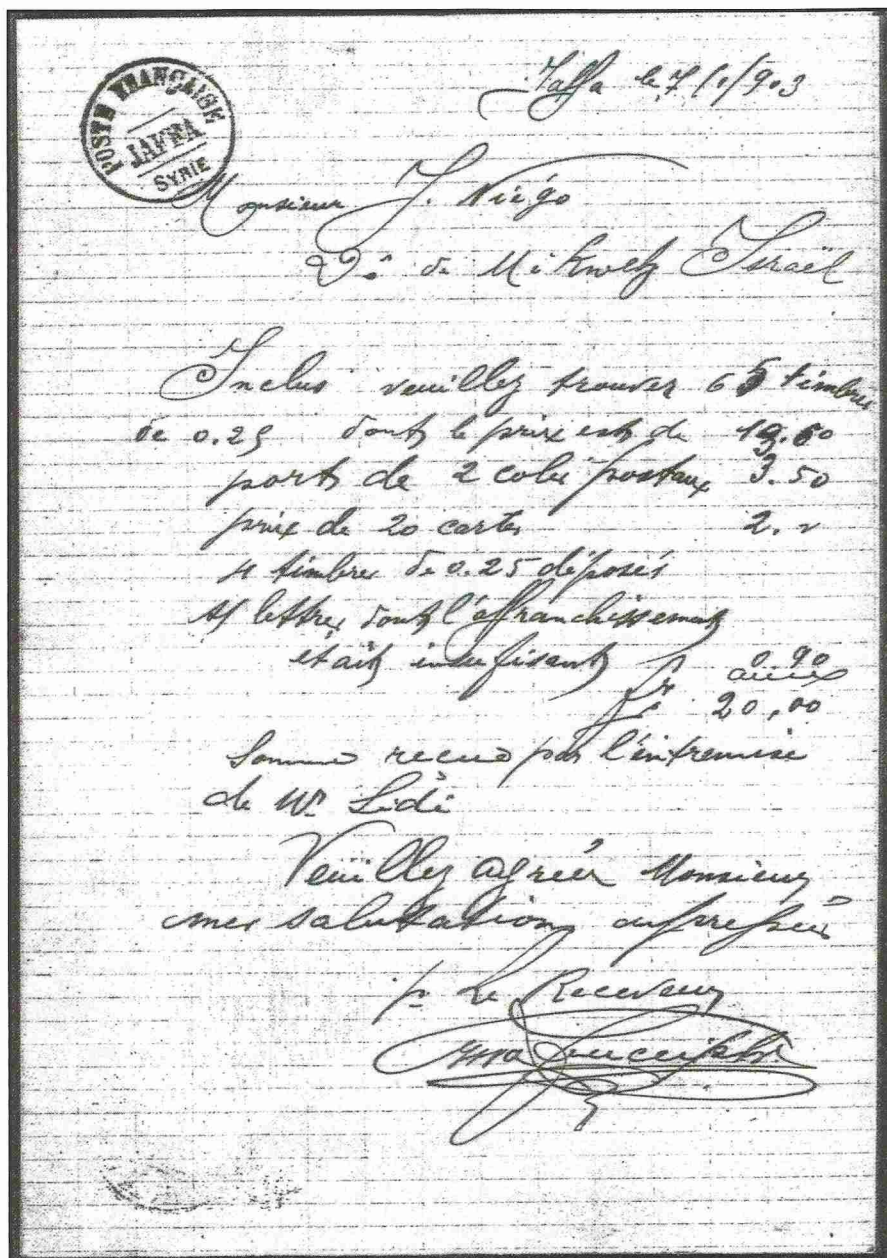 POSTE FRANÇAISE
JAFFA
SYRIE
Jaffa le 7/1/903
Monsieur J. Niégo
Dr de Mikweh Israël
Inclus veuillez trouver 65 timbres
de 0.25 dont le prix est de
port de 2 colis postaux 3.50
prix de 20 cartes 2.
4 timbres de 0.25 déposés
lettres dont l'affranchissement
était insuffisant 0.90
fr 20,00
Somme recue par l'entremise
de Mr Lidi
Veuillez agréer Monsieur
mes salutation empressées
p. Le Receveur